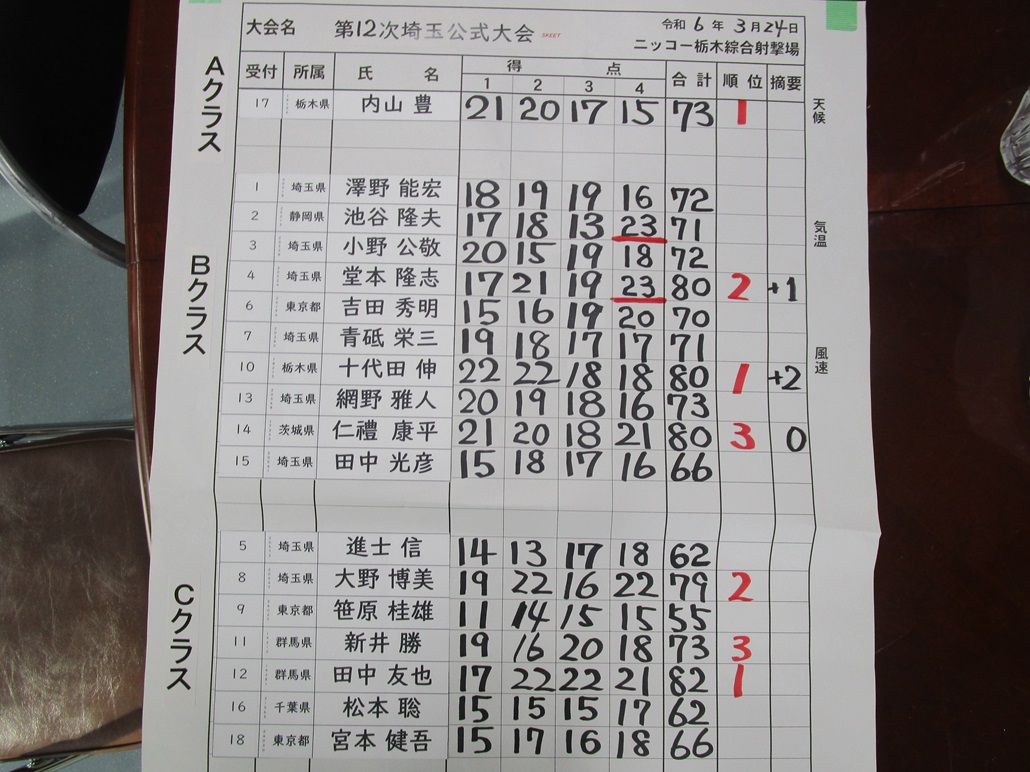 大会名 第12次埼玉公式大会 SKEET 令和 6 年 3 月 24 日
ニッコー栃木綜合射撃場
受付 所属 氏 名 得 点 合計 順位 摘要
1 2 3 4
Aクラス
17 栃木県 内山 豊 21 20 17 15 73 1
天候
Bクラス
1 埼玉県 澤野 能宏 18 19 19 16 72
2 静岡県 池谷 隆夫 17 18 13 23 71
気温
3 埼玉県 小野 公敬 20 15 19 18 72
4 埼玉県 堂本 隆志 17 21 19 23 80 2 +1
6 東京都 吉田 秀明 15 16 19 20 70
7 埼玉県 青砥 栄三 19 18 17 17 71
風速
10 栃木県 十代田 伸 22 22 18 18 80 1 +2
13 埼玉県 網野 雅人 20 19 18 16 73
14 茨城県 仁禮 康平 21 20 18 21 80 3 0
15 埼玉県 田中 光彦 15 18 17 16 66
Cクラス
5 埼玉県 進士 信 14 13 17 18 62
8 埼玉県 大野 博美 19 22 16 22 79 2
9 東京都 笹原 桂雄 11 14 15 15 55
11 群馬県 新井 勝 19 16 20 18 73 3
12 群馬県 田中 友也 17 22 22 21 82 1
16 千葉県 松本 聡 15 15 15 17 62
18 東京都 宮本 健吾 15 17 16 18 66